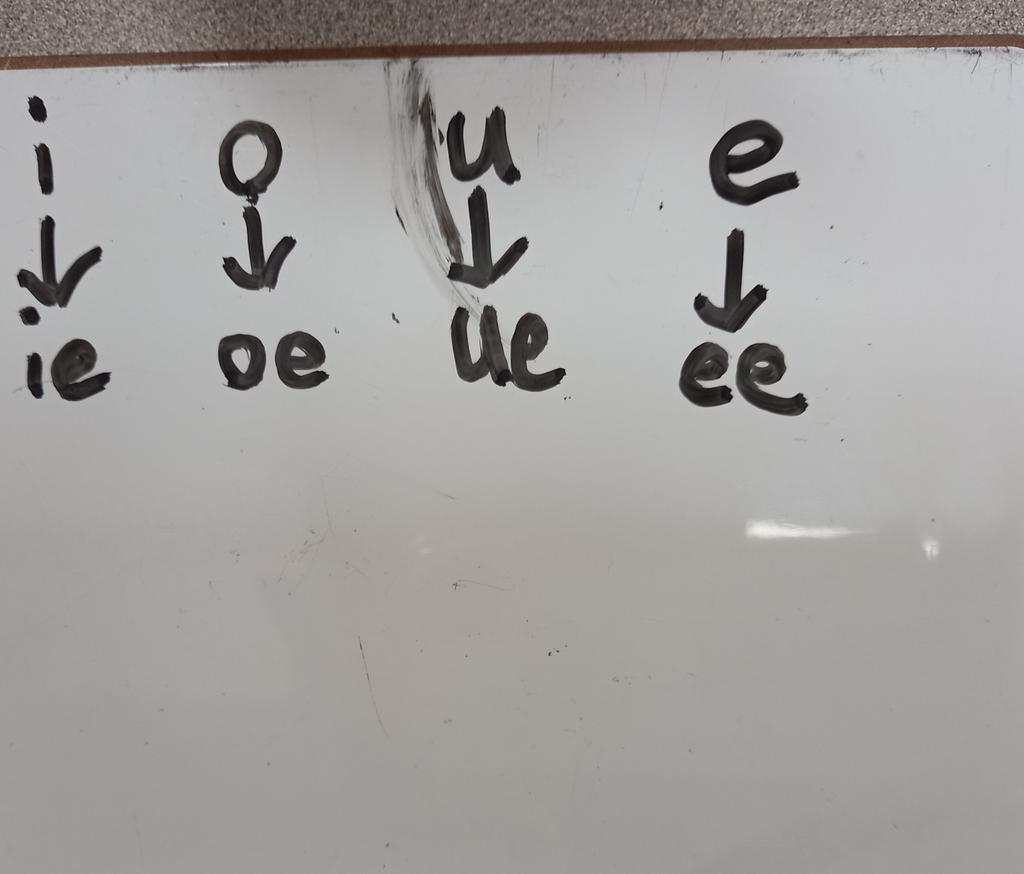 i o u e
↓ ↓ ↓ ↓
ie oe ue ee